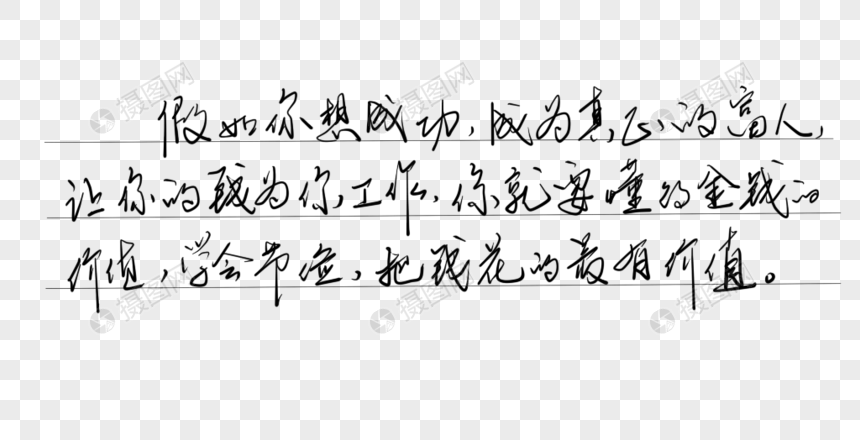 假如你想成功,成为真正的富人,
让你的钱为你工作,你就要懂得金钱的
价值,学会节俭,把钱花的最有价值。
摄图网
摄图网
摄图网
摄图网
摄图网
摄图网